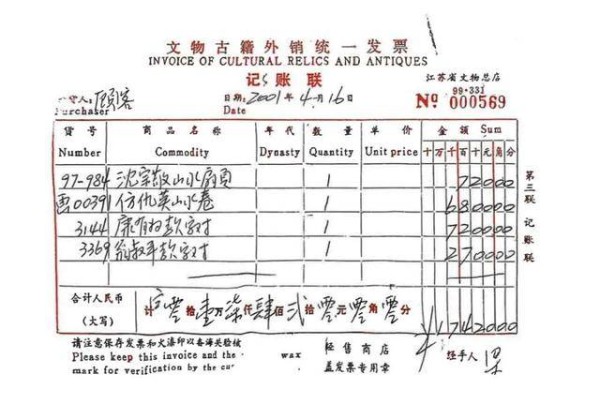 文物古籍外销统一发票
INVOICE OF CULTURAL RELICS AND ANTIQUES
记账联
江苏省文物总店
99·331
顾客
Purchaser
日期: 2001年4月16日
Date
№ 000569
货号 商品名称 年代 数量 单价 金额 Sum
Number Commodity Dynasty Quantity Unit price 十万千百十元角分
97-984 沈宗敬山水扇页 1 72000
00391 仿仇英山水卷 1 680000
3144 康有为款字对 1 720000
3369 翁叔平款字对 1 270000
合计人民币
(大写)
计 零拾壹万柒仟肆佰贰拾零元零角零分
¥1742000
第三联 记账联
请注意保存发票和火漆印以备海关验核
Please keep this invoice and the wax
mark for verification by the
经售商店
盖发票专用章
经手人